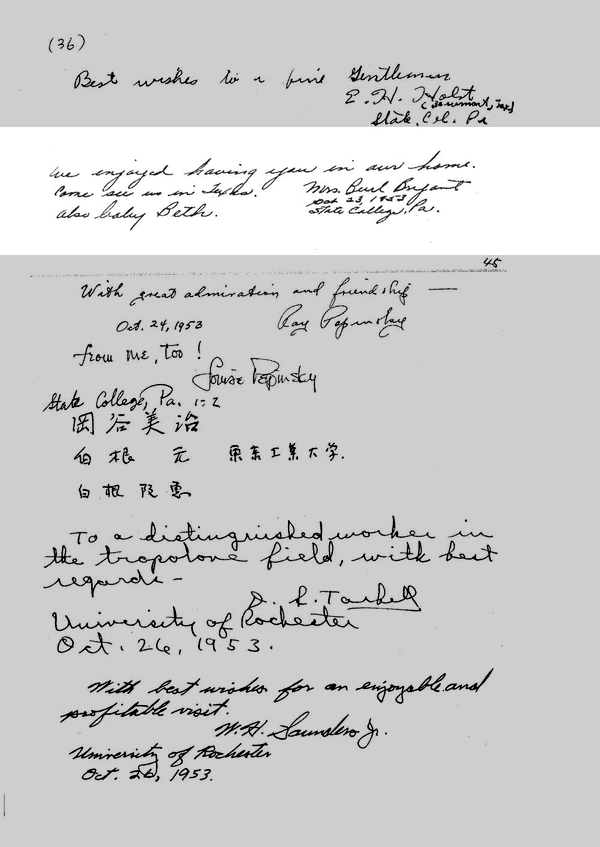 (36)
Best wishes to a fine Gentleman
E. H. Holst
(Beaumont, Tex)
State Col. Pa
We enjoyed having you in our home.
Come see us in Texas. Mrs. Burl Bryant
Oct 23, 1953
also baby Beth. State College, Pa.
45
With great admiration and friendship —
Oct. 24, 1953 Ray Pepinsky
from me, too!
Louise Pepinsky
State College, Pa.
岡谷美治
白根 元 東京工業大学.
白根
To a distinguished worker in
the tropolone field, with best
regards -
D. S. Tarbell
University of Rochester
Oct. 26, 1953.
With best wishes for an enjoyable and
profitable visit.
W. H. Saunders Jr.
University of Rochester
Oct. 26, 1953.